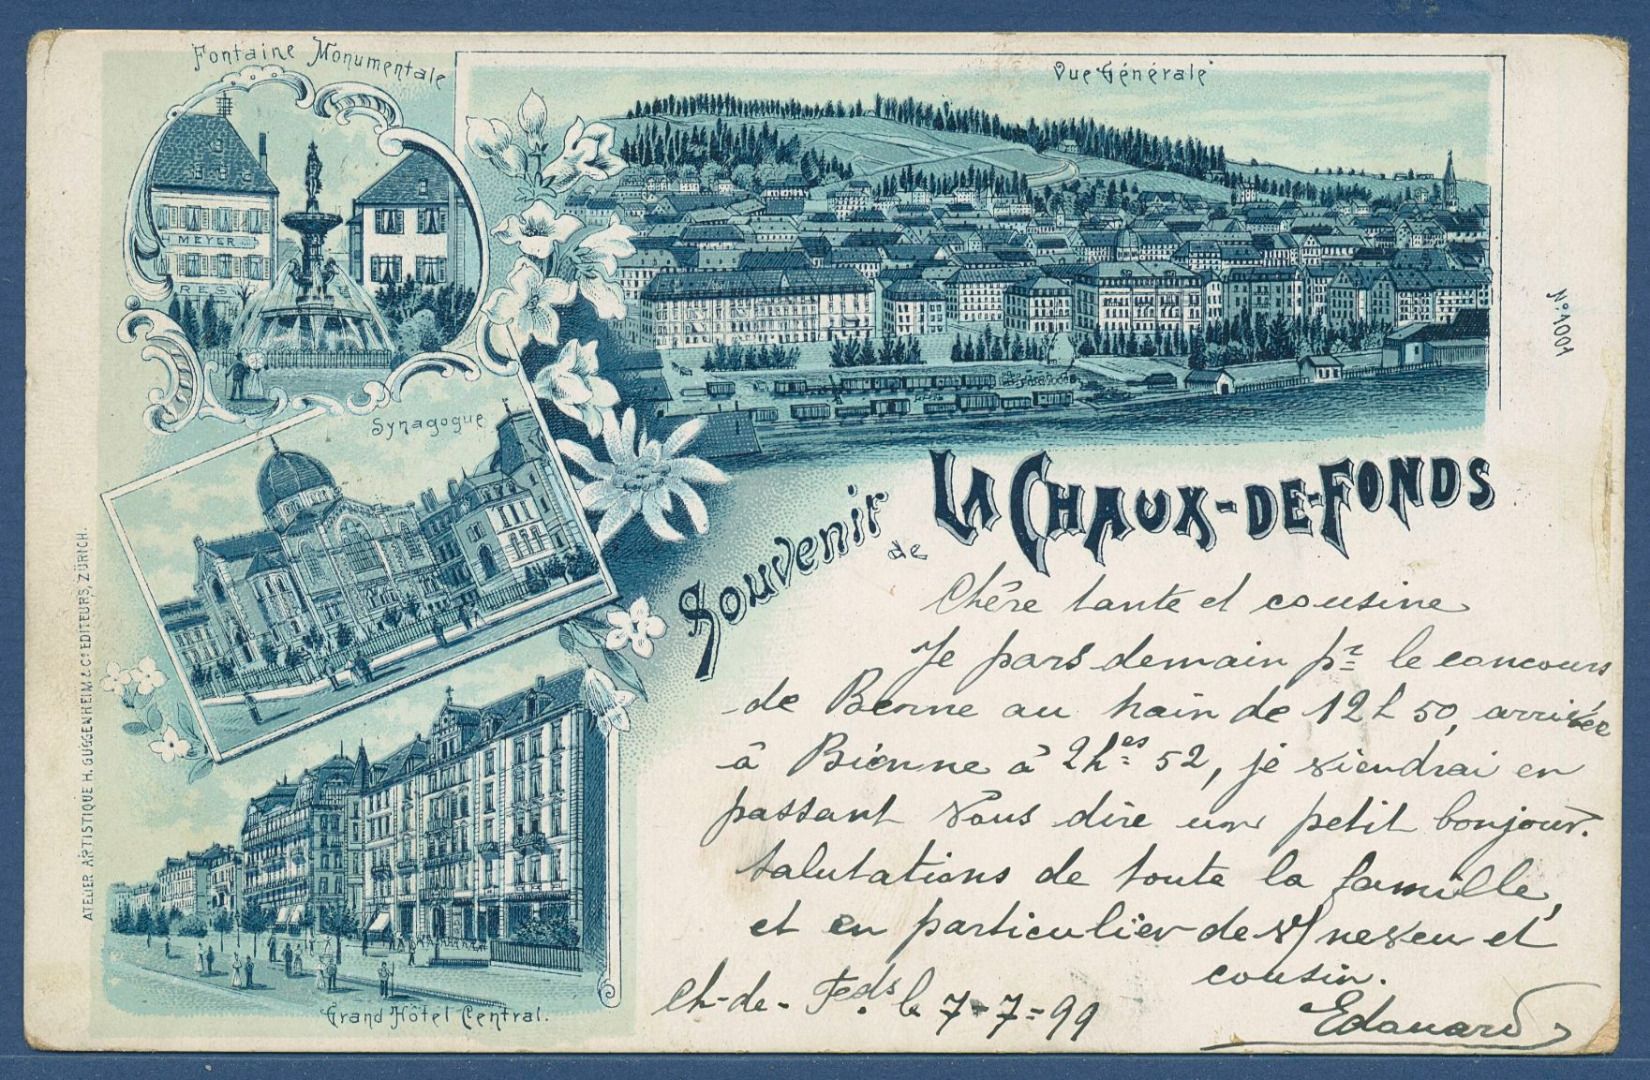 Fontaine Monumentale
MEYER
Vue Générale
Nº 1001
Synagogue
Souvenir de LA CHAUX-DE-FONDS
Grand Hôtel Central.
ATELIER ARTISTIQUE H. GUGGENHEIM & Cº EDITEURS, ZÜRICH.
Chère tante et cousine
Je pars demain pr le concours
de Berne au train de 12 h 50, arrivée
à Bienne à 2 hes 52, je viendrai en
passant vous dire un petit bonjour.
Salutations de toute la famille,
et en particulier de v/ neveu et
cousin.
Ch-de-Fds. le 7-7=99
Edouard